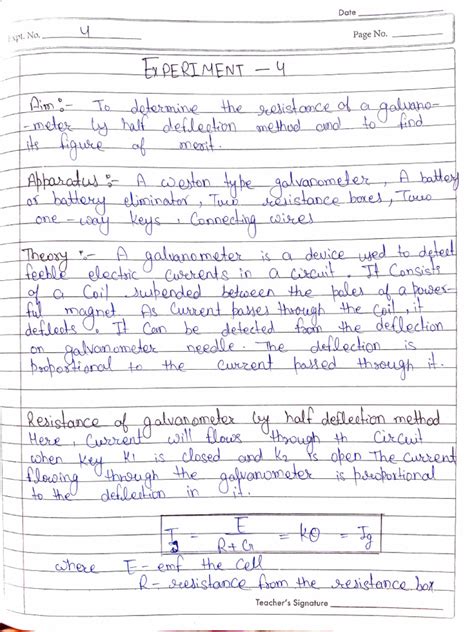 Date
Expt. No. 4
Page No.
EXPERIMENT - 4
Aim :- To determine the resistance of a galvano-
-meter by half deflection method and to find
its figure of merit.
Apparatus :- A weston type galvanometer, A battery
or battery eliminator, Two resistance boxes, Two
one-way keys, Connecting wires
Theory :- A galvanometer is a device used to detect
feeble electric currents in a circuit. It Consists
of a Coil suspended between the poles of a power-
ful magnet. As Current passes through the Coil, it
deflects. It Can be detected from the deflection
on galvanometer needle. The deflection is
proportional to the current passed through it.
Resistance of galvanometer by half deflection method
Here, Current will flows through th Circuit
when Key K1 is closed and K2 is open The current
flowing through the galvanometer is proportional
to the deflection in it.
Ig - E/R+G = Kθ = Ig
where E - emf the Cell
R - resistance from the resistance box
Teacher's Signature